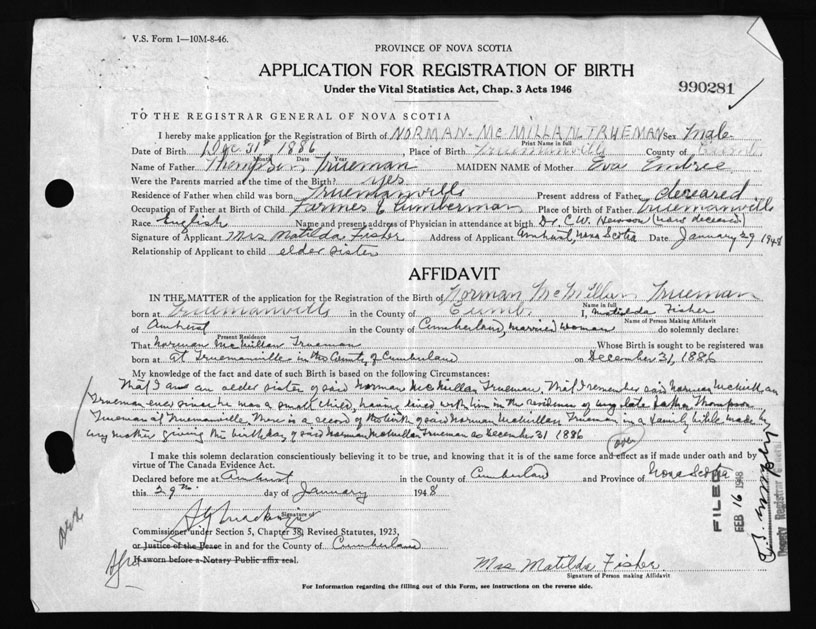 V.S. Form 1—10M-8-46.
PROVINCE OF NOVA SCOTIA
APPLICATION FOR REGISTRATION OF BIRTH
Under the Vital Statistics Act, Chap. 3 Acts 1946
990281
TO THE REGISTRAR GENERAL OF NOVA SCOTIA
I hereby make application for the Registration of Birth of NORMAN McMILLAN TRUEMAN Sex Male
Print Name in full
Date of Birth Dec 31st 1886 Place of Birth Truemanville County of Cumb.
Month Date Year
Name of Father Thompson Trueman MAIDEN NAME of Mother Eva Embree
Were the Parents married at the time of the Birth? yes
Residence of Father when child was born Truemanville Present address of Father deceased
Occupation of Father at Birth of Child Farmer & Lumberman Place of birth of Father Truemanville
Race English Name and present address of Physician in attendance at birth Dr. C.W. Hewson (deceased)
Signature of Applicant Mrs Matilda Fisher Address of Applicant Amherst, Nova Scotia Date January 29 1948
Relationship of Applicant to child elder sister
AFFIDAVIT
IN THE MATTER of the application for the Registration of the Birth of Norman McMillan Trueman
Name in full
born at Truemanville in the County of Cumb. I, Matilda Fisher
Name of Person Making Affidavit
of Amherst in the County of Cumberland, married woman do solemnly declare:
Present Residence
That Norman McMillan Trueman Whose Birth is sought to be registered was
born at at Truemanville in the County of Cumberland on December 31, 1886
My knowledge of the fact and date of such Birth is based on the following Circumstances:
That I am an elder sister of said Norman McMillan Trueman, That I remember said Norman McMillan
Trueman ever since he was a small child, having lived with him in the residence of my late father Thompson
Trueman at Truemanville. There is a record of the birth of said Norman McMillan Trueman in a family bible made by
my mother giving the birthday of said Norman McMillan Trueman as December 31 1886
(over)
I make this solemn declaration conscientiously believing it to be true, and knowing that it is of the same force and effect as if made under oath and by
virtue of The Canada Evidence Act.
Declared before me at Amherst in the County of Cumberland and Province of Nova Scotia
this 29th day of January 1948
Signature of
Commissioner under Section 5, Chapter 38, Revised Statutes, 1923,
or Justice of the Peace in and for the County of Cumberland
If sworn before a Notary Public affix seal.
Mrs Matilda Fisher
Signature of Person making Affidavit
For Information regarding the filling out of this Form, see instructions on the reverse side.
over
FILED
FEB 16 1948
Deputy Registrar General